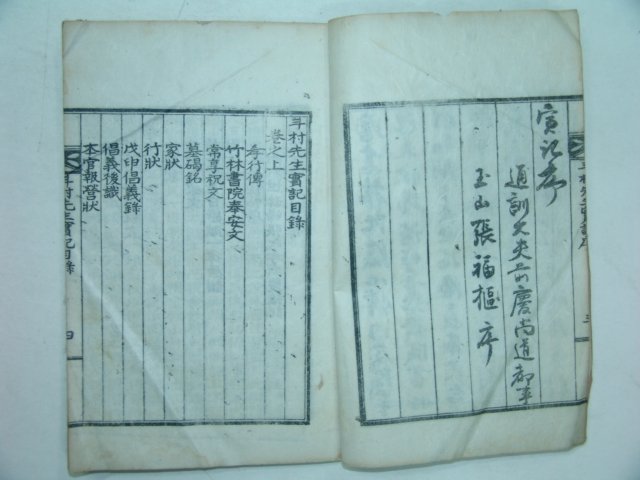 實記序
通訓大夫前慶尚道都事
玉山張福樞序
斗村先生實記目錄
卷之上
孝行傳
竹林書院奉安文
常享祝文
墓碣銘
家狀
行狀
戊申倡義錄
倡義後識
本官報營狀
斗村先生實記目錄
四